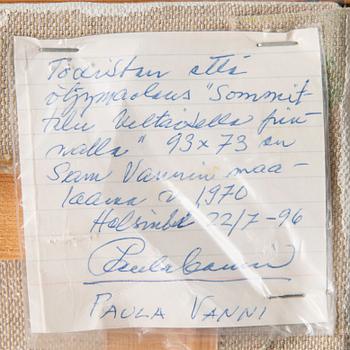 Todistan että
öljymaalaus "Sommit-
telu keltaisella pin-
nalla" 93 x 73 on
Sam Vannin maa-
laama v 1970
Helsinki 22/7-96
Paula Vanni
PAULA VANNI